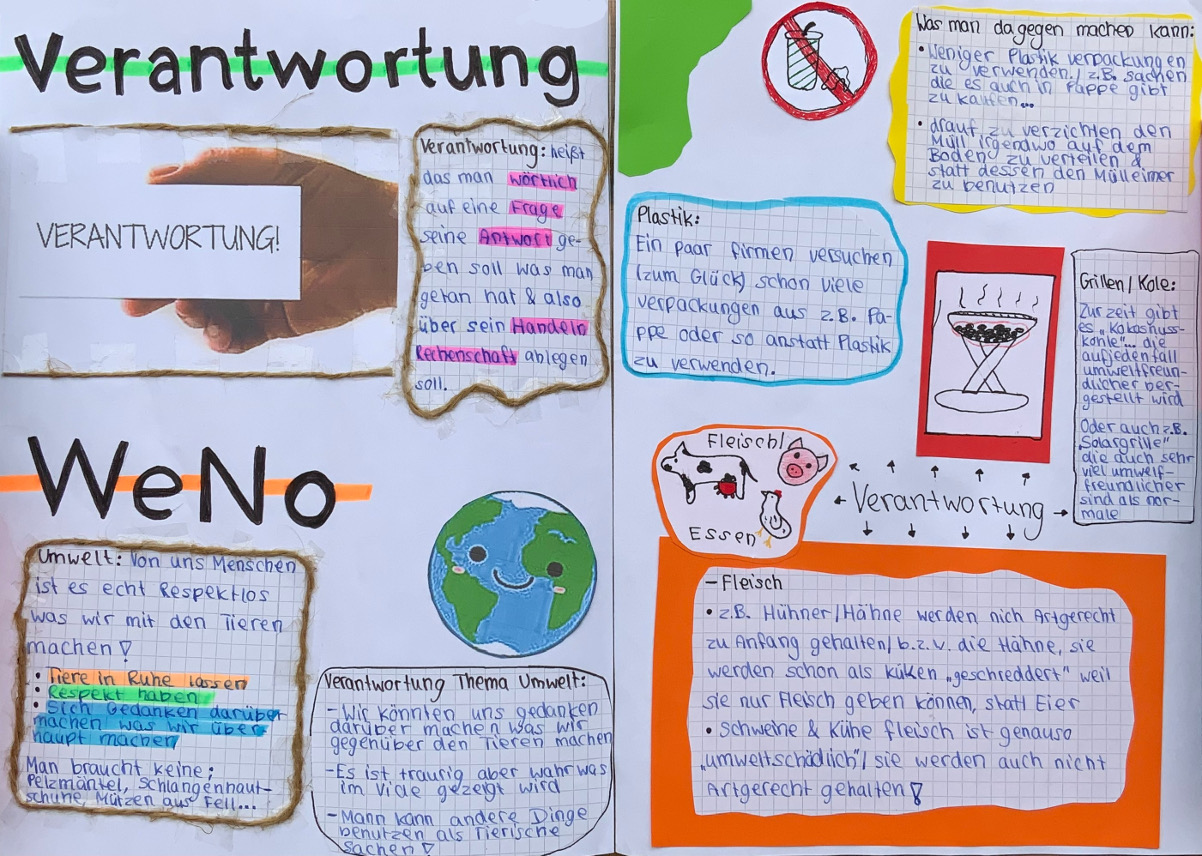 Verantwortung
VERANTWORTUNG!
Verantwortung: heißt
das man wörtlich
auf eine Frage
seine Antwort ge-
ben soll was man
getan hat & also
über sein Handeln
Rechenschaft ablegen
soll.
WeNo
Umwelt: Von uns Menschen
ist es echt Respektlos
was wir mit den Tieren
machen!
• Tiere in Ruhe lassen
• Respekt haben
• Sich Gedanken darüber
machen was wir über
haupt machen
Man braucht keine;
Pelzmäntel, Schlangenhaut-
schuhe, Mützen aus Fell...
Verantwortung Thema Umwelt:
- Wir könnten uns gedanken
darüber machen was wir
gegenüber den Tieren machen
- Es ist traurig aber wahr was
im Vide gezeigt wird
- Mann kann andere Dinge
benutzen als Tierische
sachen!
Was man dagegen machen kann:
• Weniger Plastik verpackungen
zu verwenden./ z.B. sachen
die es auch in Pappe gibt
zu kaufen...
• drauf zu verzichten den
Müll irgendwo auf dem
Boden zu verteilen &
statt dessen den Mülleimer
zu benutzen
Plastik:
Ein paar firmen versuchen
(zum Glück) schon viele
verpackungen aus z.B. Pa-
ppe oder so anstatt Plastik
zu verwenden.
Grillen/Kole:
Zur zeit gibt
es „Kokosnuss-
konle"... die
aufjedenfall
umweltfreun-
dlicher her-
gestellt wird
Oder auch z.B.
„Solargrille"
die auch sehr
viel umwelt-
freundlicher
sind als nor-
male
Fleisch/
Essen
Verantwortung
- Fleisch
• z.B. Hühner/Hähne werden nich Artgerecht
zu Anfang gehalten/ b.z.w. die Hähne, sie
werden schon als küken „geschreddert" weil
sie nur Fleisch geben können, statt Eier
• Schweine & Kühe fleisch ist genauso
„umweltschädlich"/ sie werden auch nicht
Artgerecht gehalten!